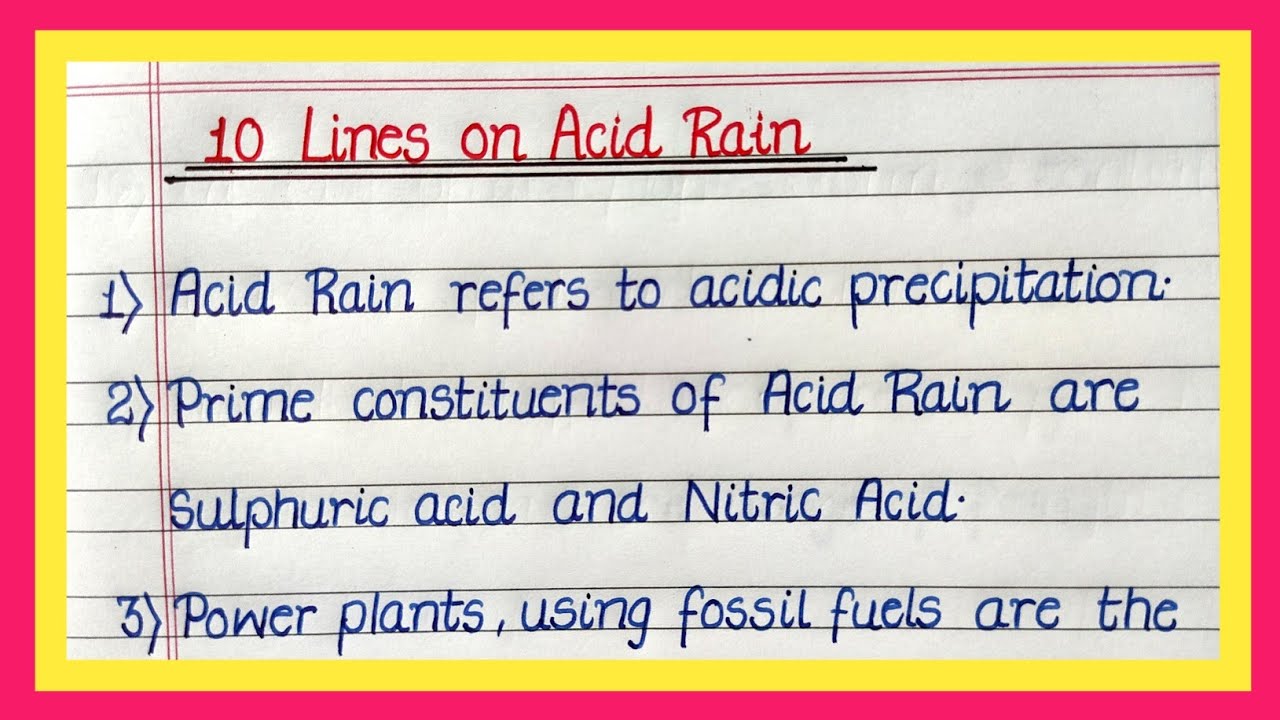 10 Lines on Acid Rain
1) Acid Rain refers to acidic precipitation.
2) Prime constituents of Acid Rain are
Sulphuric acid and Nitric Acid.
3) Power plants, using fossil fuels are the